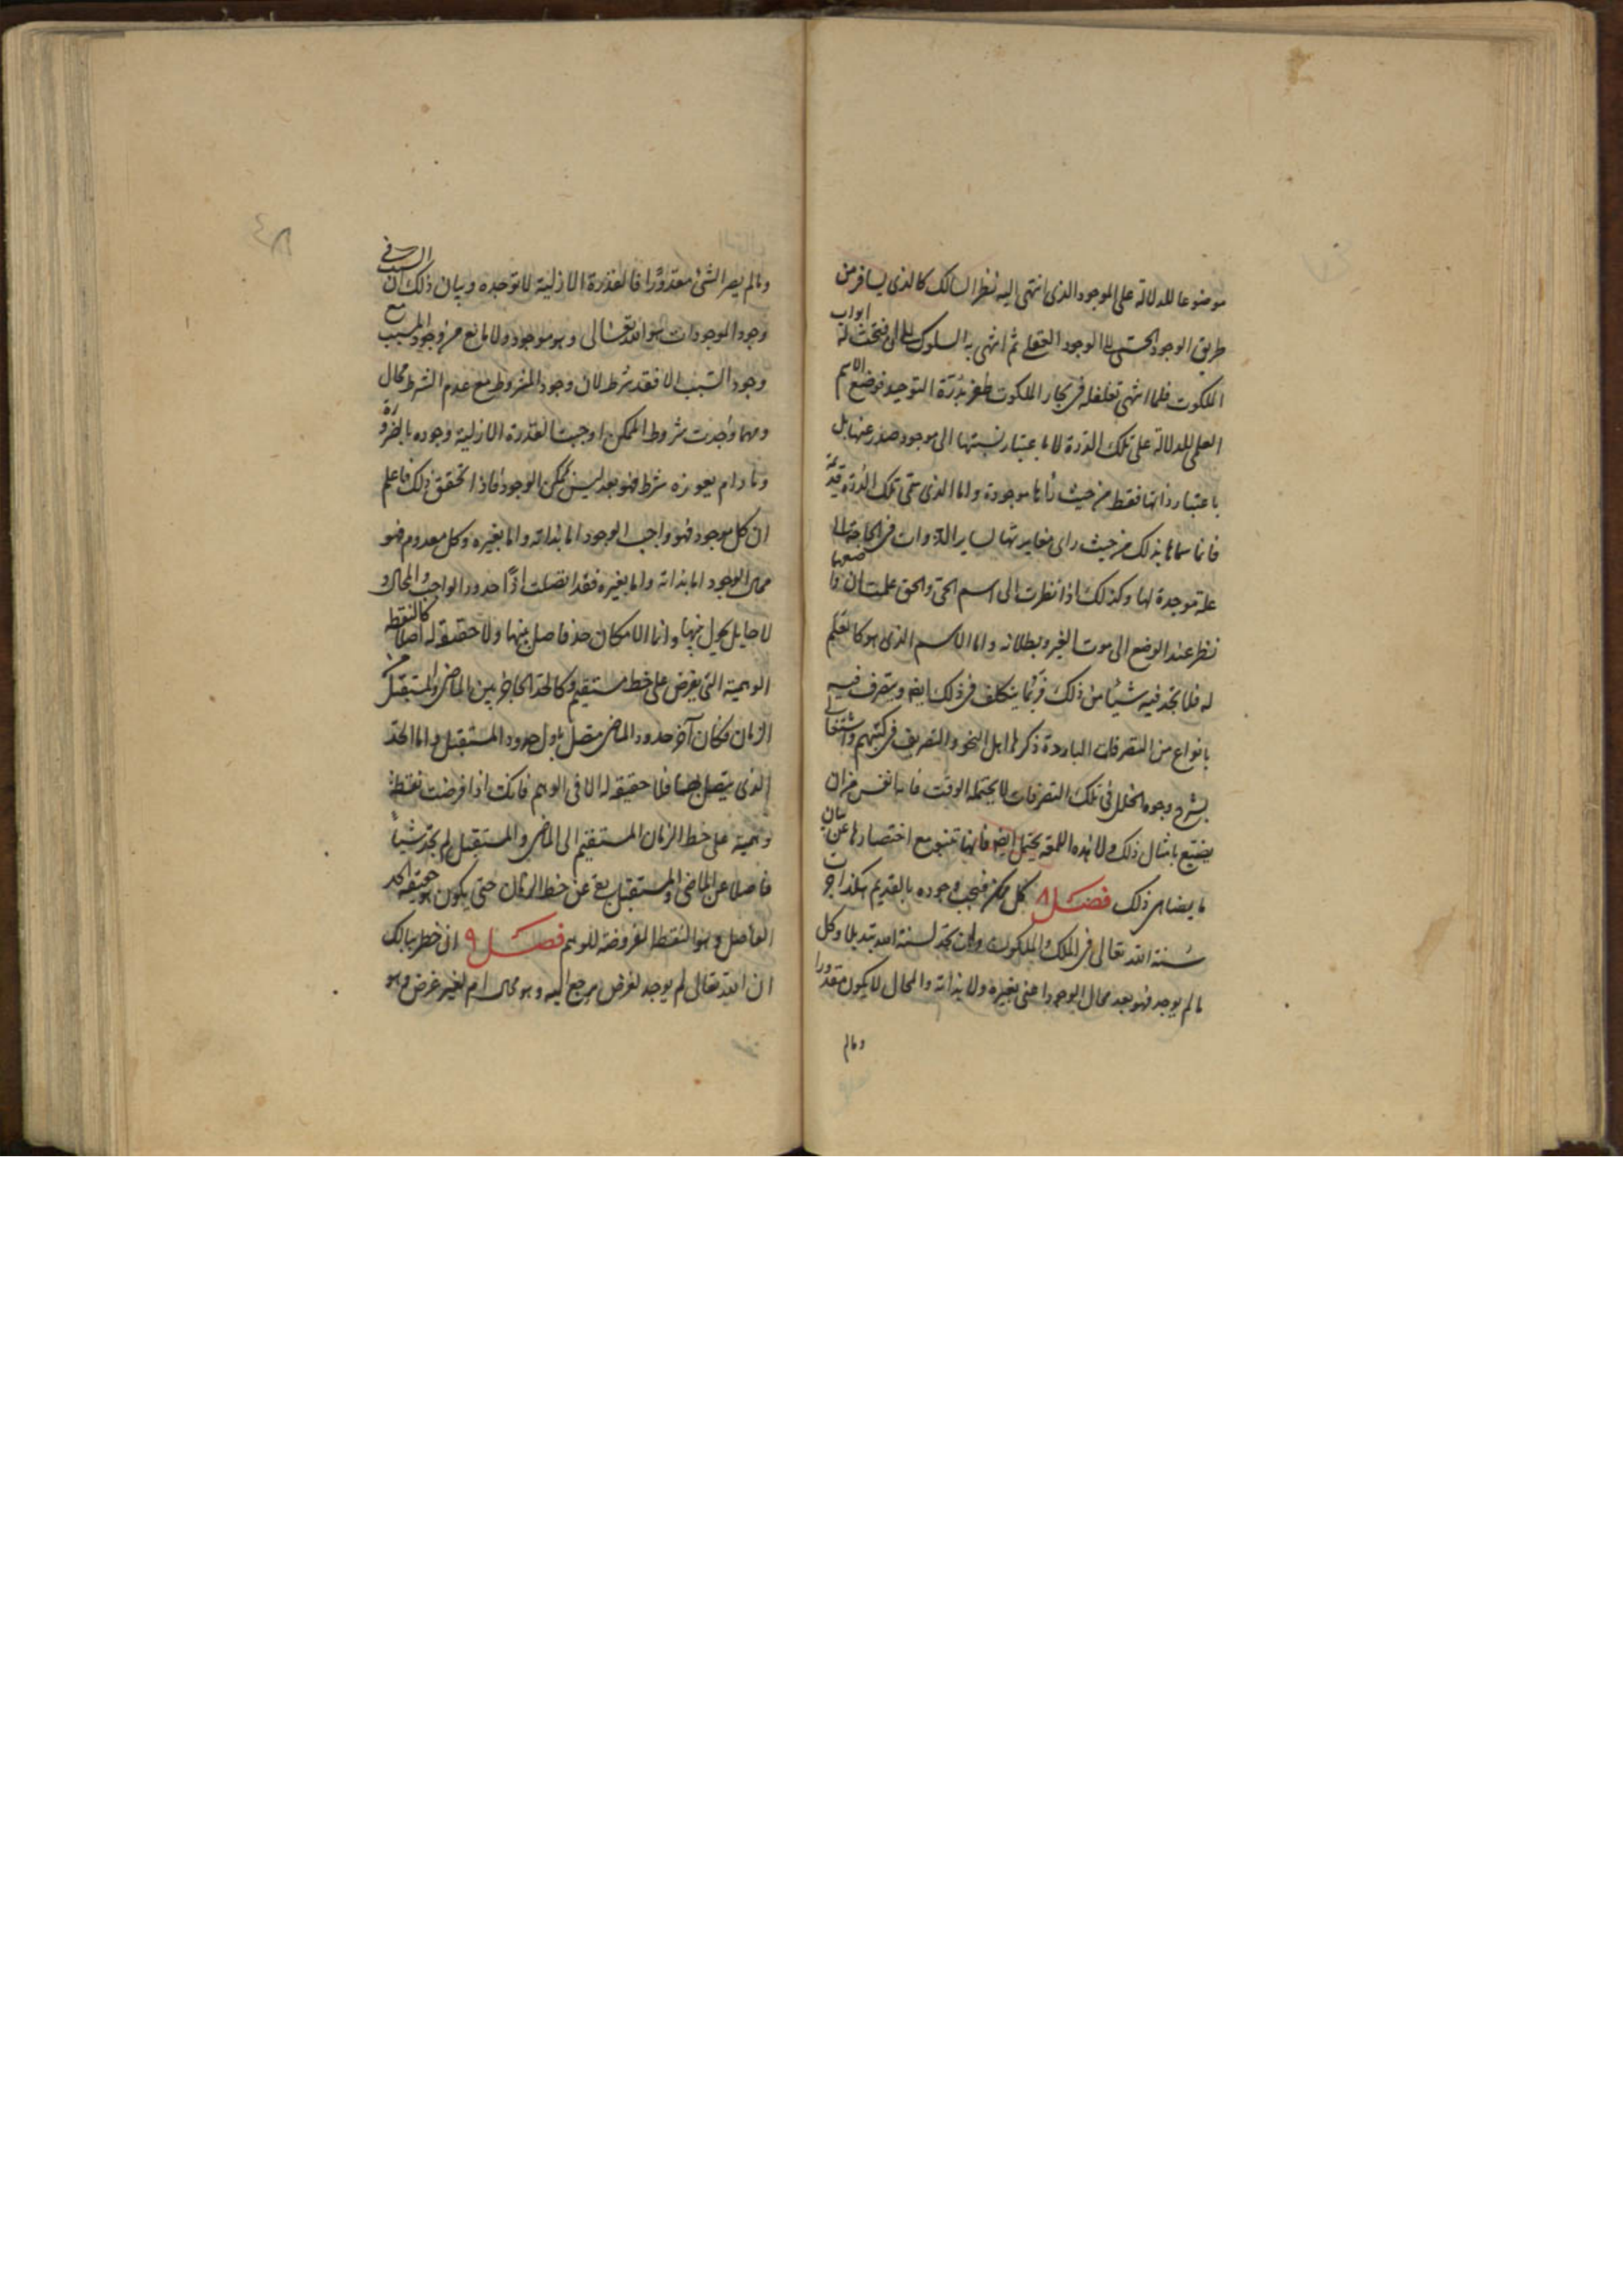 موضوعا للدلالة على الموجود الذى انتهى اليه نظر السالك كالذى يسافر من
طريق الوجود الحسى الى الوجود العقلى ثم انتهى به السلوك الى ان فتحت له ابواب
الملكوت فلما انتهى تغلغله فى بحار الملكوت ظفر بدرة التوحيد فوضع الاسم
العلمى للدلالة على تلك الدرة لا باعتبار نسبتها الى موجود صدر عنها بل
باعتبار ذاتها فقط من حيث انها موجودة واما الذى سمى تلك الدرة قديمة
فانما سماها بذلك من حيث راى مغايرتها لساير الذوات فى الحاجة الى
علة موجدة لها وكذلك اذا نظرت الى اسم الحى والحق علمت ان واضعها
نظر عند الوضع الى موت الغير وبطلانه واما الاسم الذى هو كالعلم
له فلا تجد فيه شيئا من ذلك فربما يتكلف فى ذلك ايضا ويتصرف فيه
بانواع من التصرفات الباردة ذكرها اهل النحو والتصريف فى كتبهم واشتغالى
بشرح وجوه الخلل فى تلك التصرفات لا يحتمله الوقت فانه انفس من ان
يضيع بامثال ذلك ولا هذه اللمعة يحتمل ايضا فانها تنبو مع اختصارها عن بيان
ما يضاهى ذلك فصل ٨ كل ممكن فيجب وجوده بالقديم هكذا جرت
سنة الله تعالى فى الملك والملكوت ولن تجد لسنة الله تبديلا وكل
ما لم يوجد فهو بعد محال الوجود اعنى بغيره ولا بذاته والمحال لا يكون مقدورا
ومالم
٤٨
ومالم يصر الشئ مقدورا فالقدرة الازلية لا توجده وبيان ذلك ان السبب فى
وجود الموجودات هو الله تعالى وهو موجود ولا مانع من وجود المسبب مع
وجود السبب الا فقد شرط لان وجود المشروط مع عدم الشرط محال
ومهما وجدت شروط الممكن اوجبت القدرة الازلية وجوده بالضرورة
وما دام يعوزه شرط فهو بعد ليس ممكن الوجود فاذا تحقق ذلك فاعلم
ان كل موجود فهو واجب الوجود اما بذاته واما بغيره وكل معدوم فهو
محال الوجود اما بذاته واما بغيره فقد اتصلت اذا حدود الواجب والمحال و
لا حايل يحول بينهما وانما الامكان حد فاصل بينهما ولا حقيقة له اصلا كالنقطة
الوهمية التى يفرض على خط مستقيم وكالحد الحاجز بين الماضى والمستقبل من
الزمان فكان آخر حدود الماضى متصل باول حدود المستقبل واما الحد
الذى يتصل بهما فلا حقيقة له الا فى الوهم فانك اذا فرضت نقطة
وهمية على خط الزمان المستقيم الى الماضى والمستقبل لم تجد شيئا
فاصلا عن الماضى والمستقبل يقع عن خط الزمان حتى يكون هو حقيقة الحد
الفاصل وهو النقطة المفروضة للوهم فصل ٩ ان خطر ببالك
ان الله تعالى لم يوجد لغرض يرجع اليه وهو محال ام لغير غرض وهو